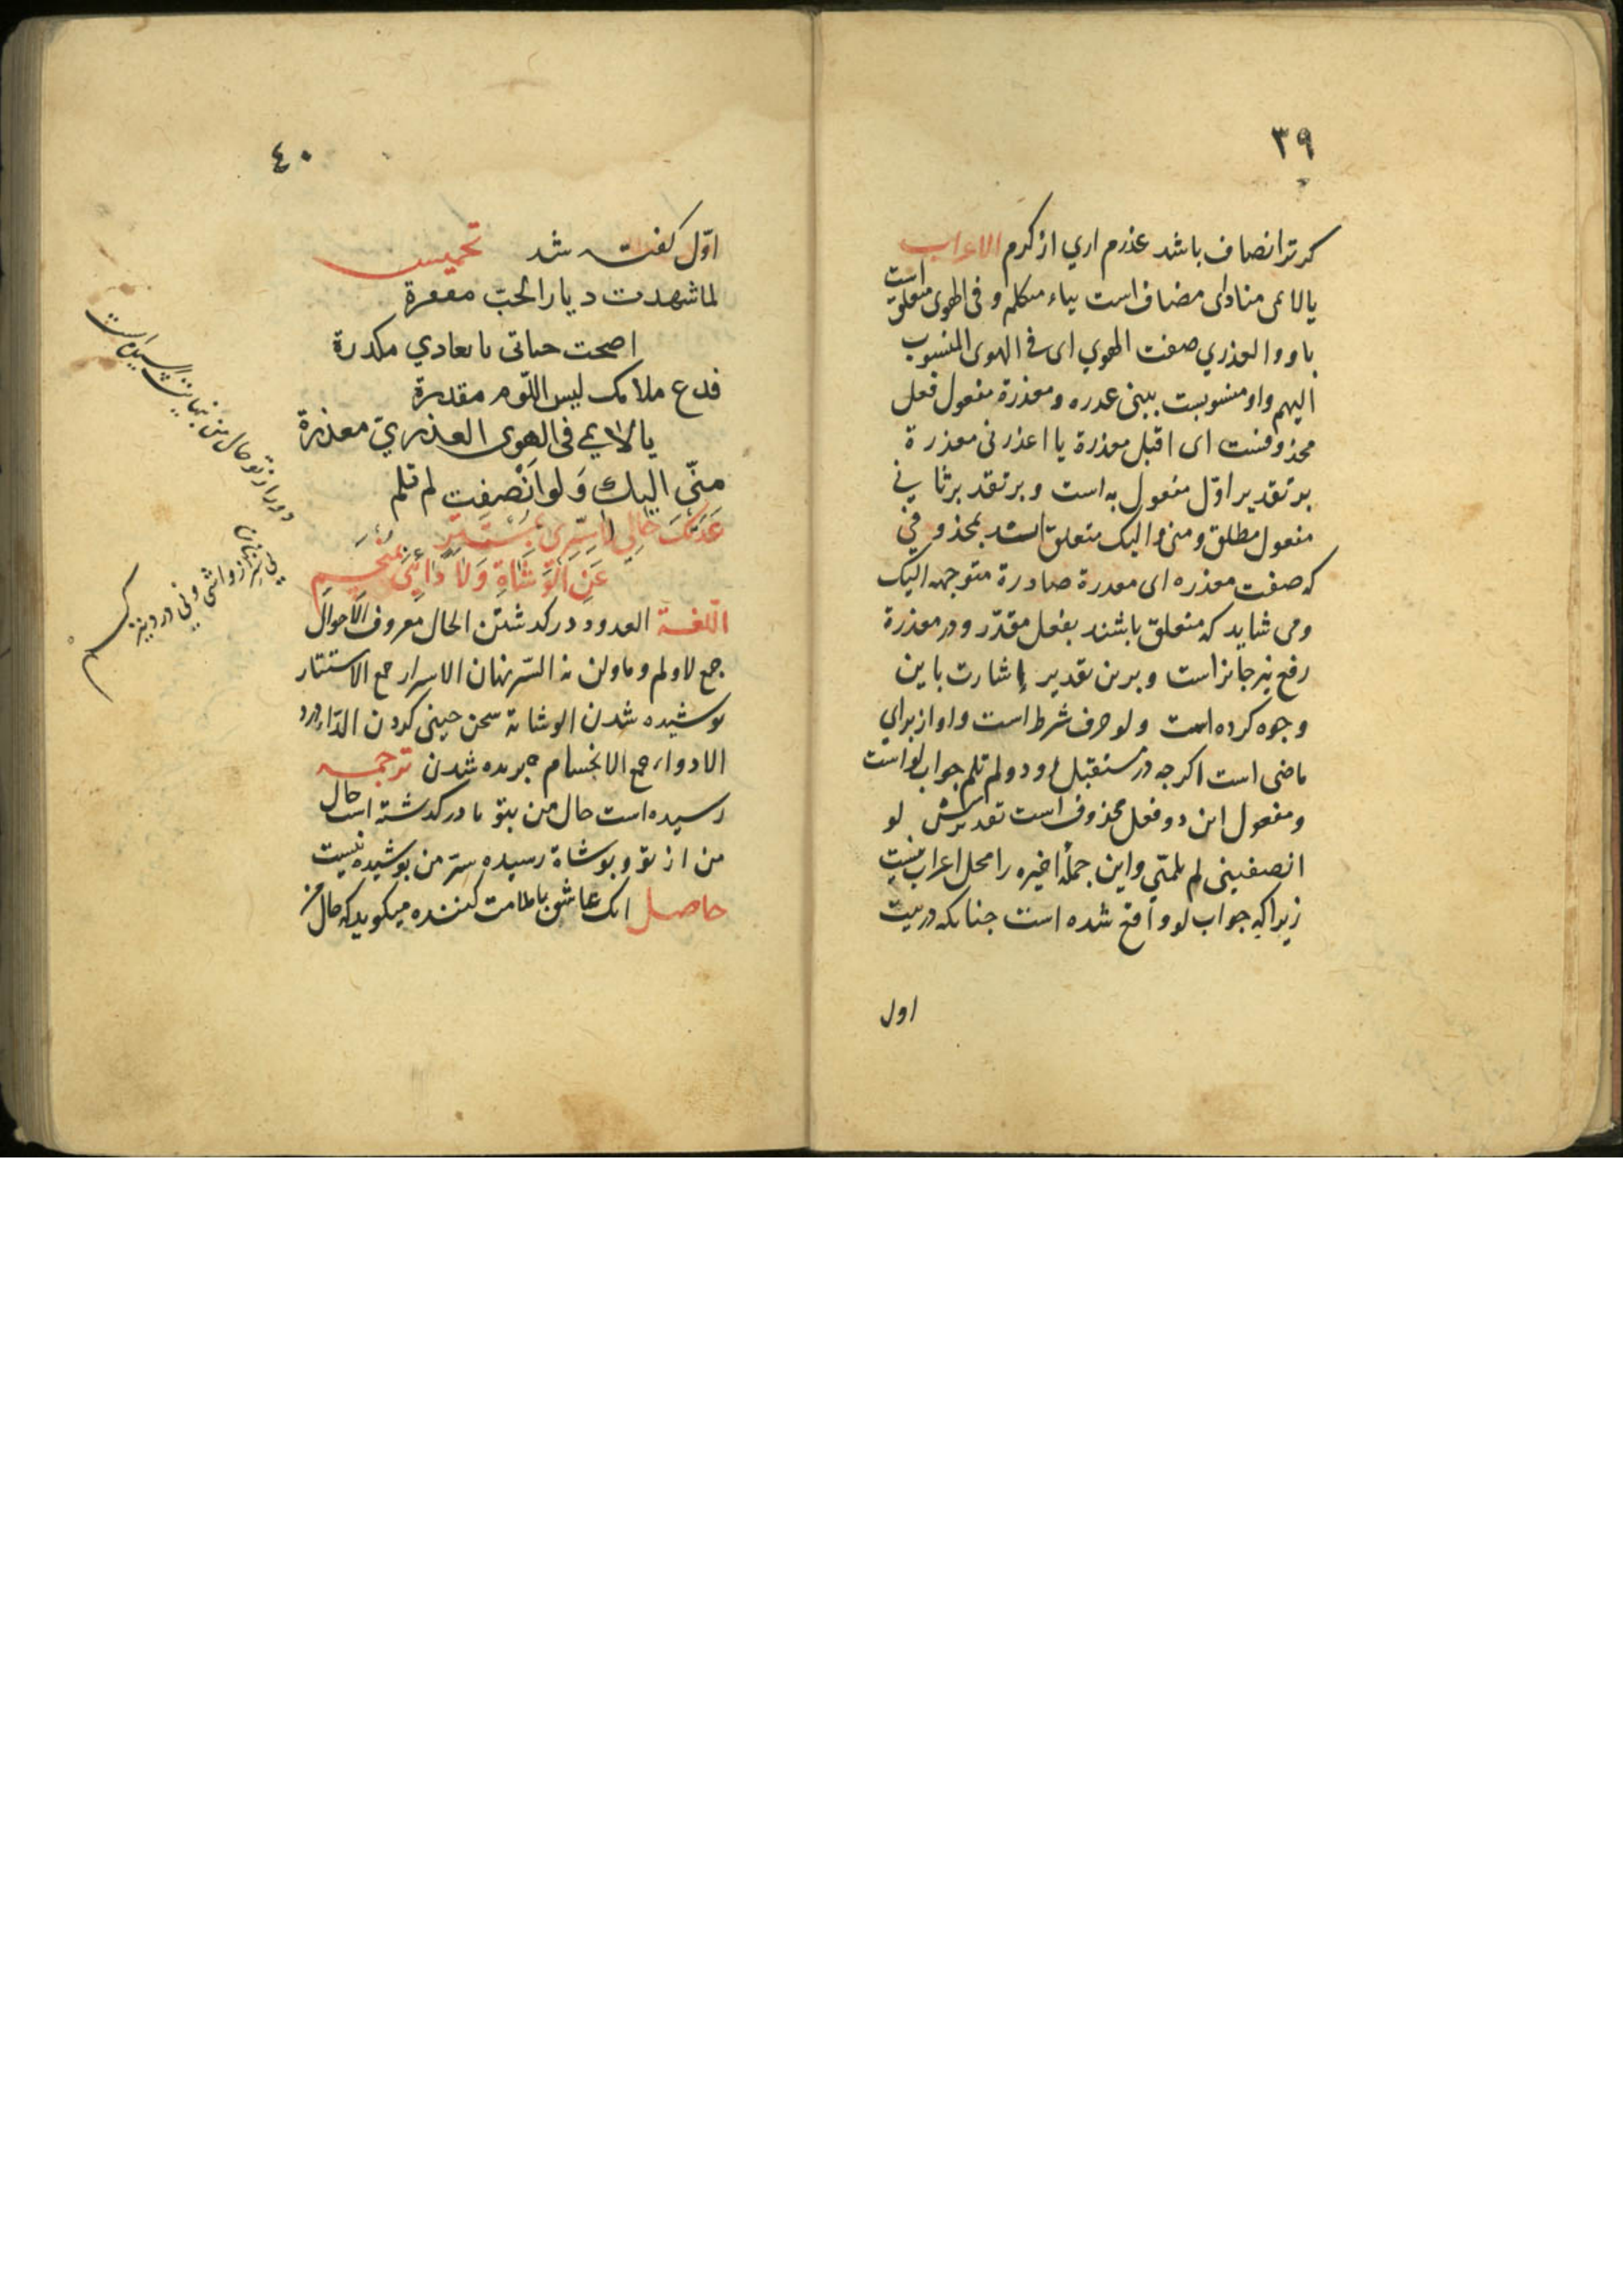 ٣٩
كرترا انصاف باشد عذرم اری از كرم الاعراب
يالائمی منادای مضاف است بیاء متكلم و فی الهوی متعلق است
باو والعذري صفت الهوي ای فی الهوی المنسوب
اليهم واو منسوبست ببنی عذره ومعذرة مفعول فعل
محذوفست ای اقبل معذرة يا اعذرنی معذرة
بر تقدیر اوّل مفعول به است و بر تقدیر ثانی
مفعول مطلق ومنی والیک متعلق است بمحذوفی
که صفت معذره ای معذرة صادرة متوجهه الیک
ومی شاید که متعلق باشند بفعل مقدّر ودر معذرة
رفع نیز جائز است و برین تقدیر إشارت باین
وجوه کرده است ولو حرف شرط است واو از برای
ماضی است اکرچه در مستقبل رود ولم تلم جواب لو است
ومفعول این دو فعل محذوف است تقدیرش لو
انصفینی لم تلمنی واین جملهٔ اخیره را محل اعراب نیست
زیرا که جواب لو واقع شده است چنانکه در بیت
اول
٤٠
اوّل کفته شد تخمیس
لما شهدت دیار الحبّ مقفرة
اصبحت حیاتی یا معادي مکدرة
فدع ملامک لیس اللّوم مقدرة
یا لائمي فی الهوی العذريّ معذرة
منّي الیك وَلو انْصفت لم تلم
عَدَتْكَ حَالِي لَا سِرِّي بِمُسْتَتِرٍ
عَنِ الْوُشَاةِ وَلَا دَائِي بِمُنْحَسِمِ
اللّغة العدود در کذشتن الحال معروف الاحوال
جمع لا ولم وما ولن نه السّر نهان الاسرار جمع الاستتار
پوشیده شدن الوشاة سخن چینی کردن الدّاء درد
الادواء جمع الانحسام بریده شدن ترجمه
رسیده است حال من بتو یا در کذشته است حال
من از تو و بوشاة رسیده سرّ من پوشیده نیست
حاصل انک عاشق با ملامت کننده میکوید که حال من
دور باز تو حال من بغایت رسیده است
نی سرّ نهان از واشی و نی دردم